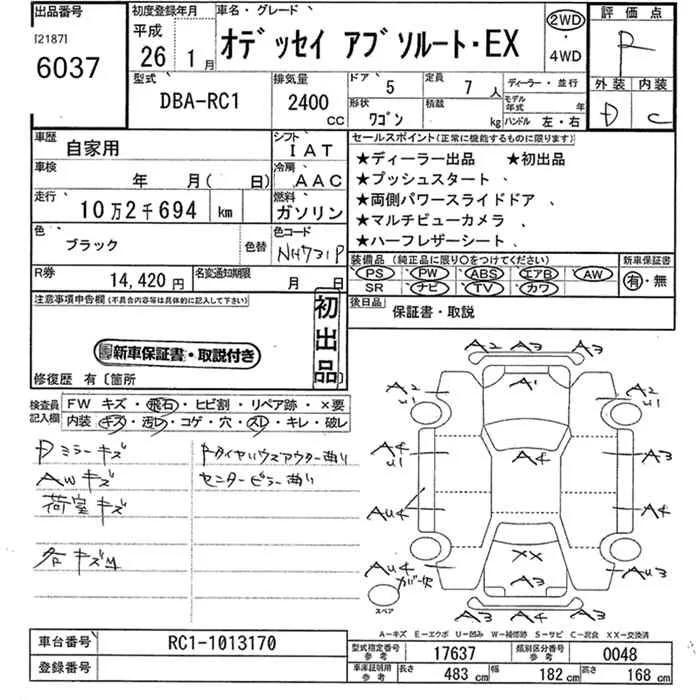 出品番号
[2187]
6037
初度登録年月
平成
26年 1月
車名・グレード
オデッセイ アブソルート・EX
2WD
・
4WD
評価点
R
外装 内装
D C
型式
DBA-RC1
排気量
2400 CC
ドア 5
定員 7人
形状 ワゴン
積載 kg
ディーラー・並行
モデル年式 年
ハンドル 左・右
車歴 自家用
シフト IAT
車検 年 月( 日)
冷房 AAC
走行 10万2千694 km
燃料 ガソリン
色 ブラック
色替
色コード NH731P
R券 14,420円
名変通知期限 月 日
セールスポイント(正常に機能するものに限ります)
★ディーラー出品 ★初出品
★プッシュスタート
★両側パワースライドドア
★マルチビューカメラ
★ハーフレザーシート
装備品(純正品に限り○をつけてください)
PS PW ABS エアB AW
SR ナビ TV カワ
新車保証書
有・無
後日品
保証書・取説
注意事項申告欄(不具合内容等は具体的に記入して下さい)
初出品
新車保証書・取説付き
修復歴 有〔箇所
検査員記入欄
FW キズ・飛石・ヒビ割・リペア跡・×要
内装 キズ・汚レ・コゲ・穴・スレ・キレ・破レ
Dミラーキズ
AWキズ
荷室キズ
各キズM
トタイヤハウスアウター曲り
センターピラー曲り
A2 A3 A3
A2 U1
A1
A2 U1
A4 U1
A4
A3
AU4
A4
XX
AU4
カバー欠
A3
AU3
スペア
A3 A4
A-キズ E-エクボ U-凹み W-補修跡 S-サビ C-腐食 XX-交換済
車台番号 RC1-1013170
登録番号
型式指定番号 参考 17637
類別区分番号 参考 0048
車庫証明用 参考 長さ 483cm 幅 182cm 高さ 168cm